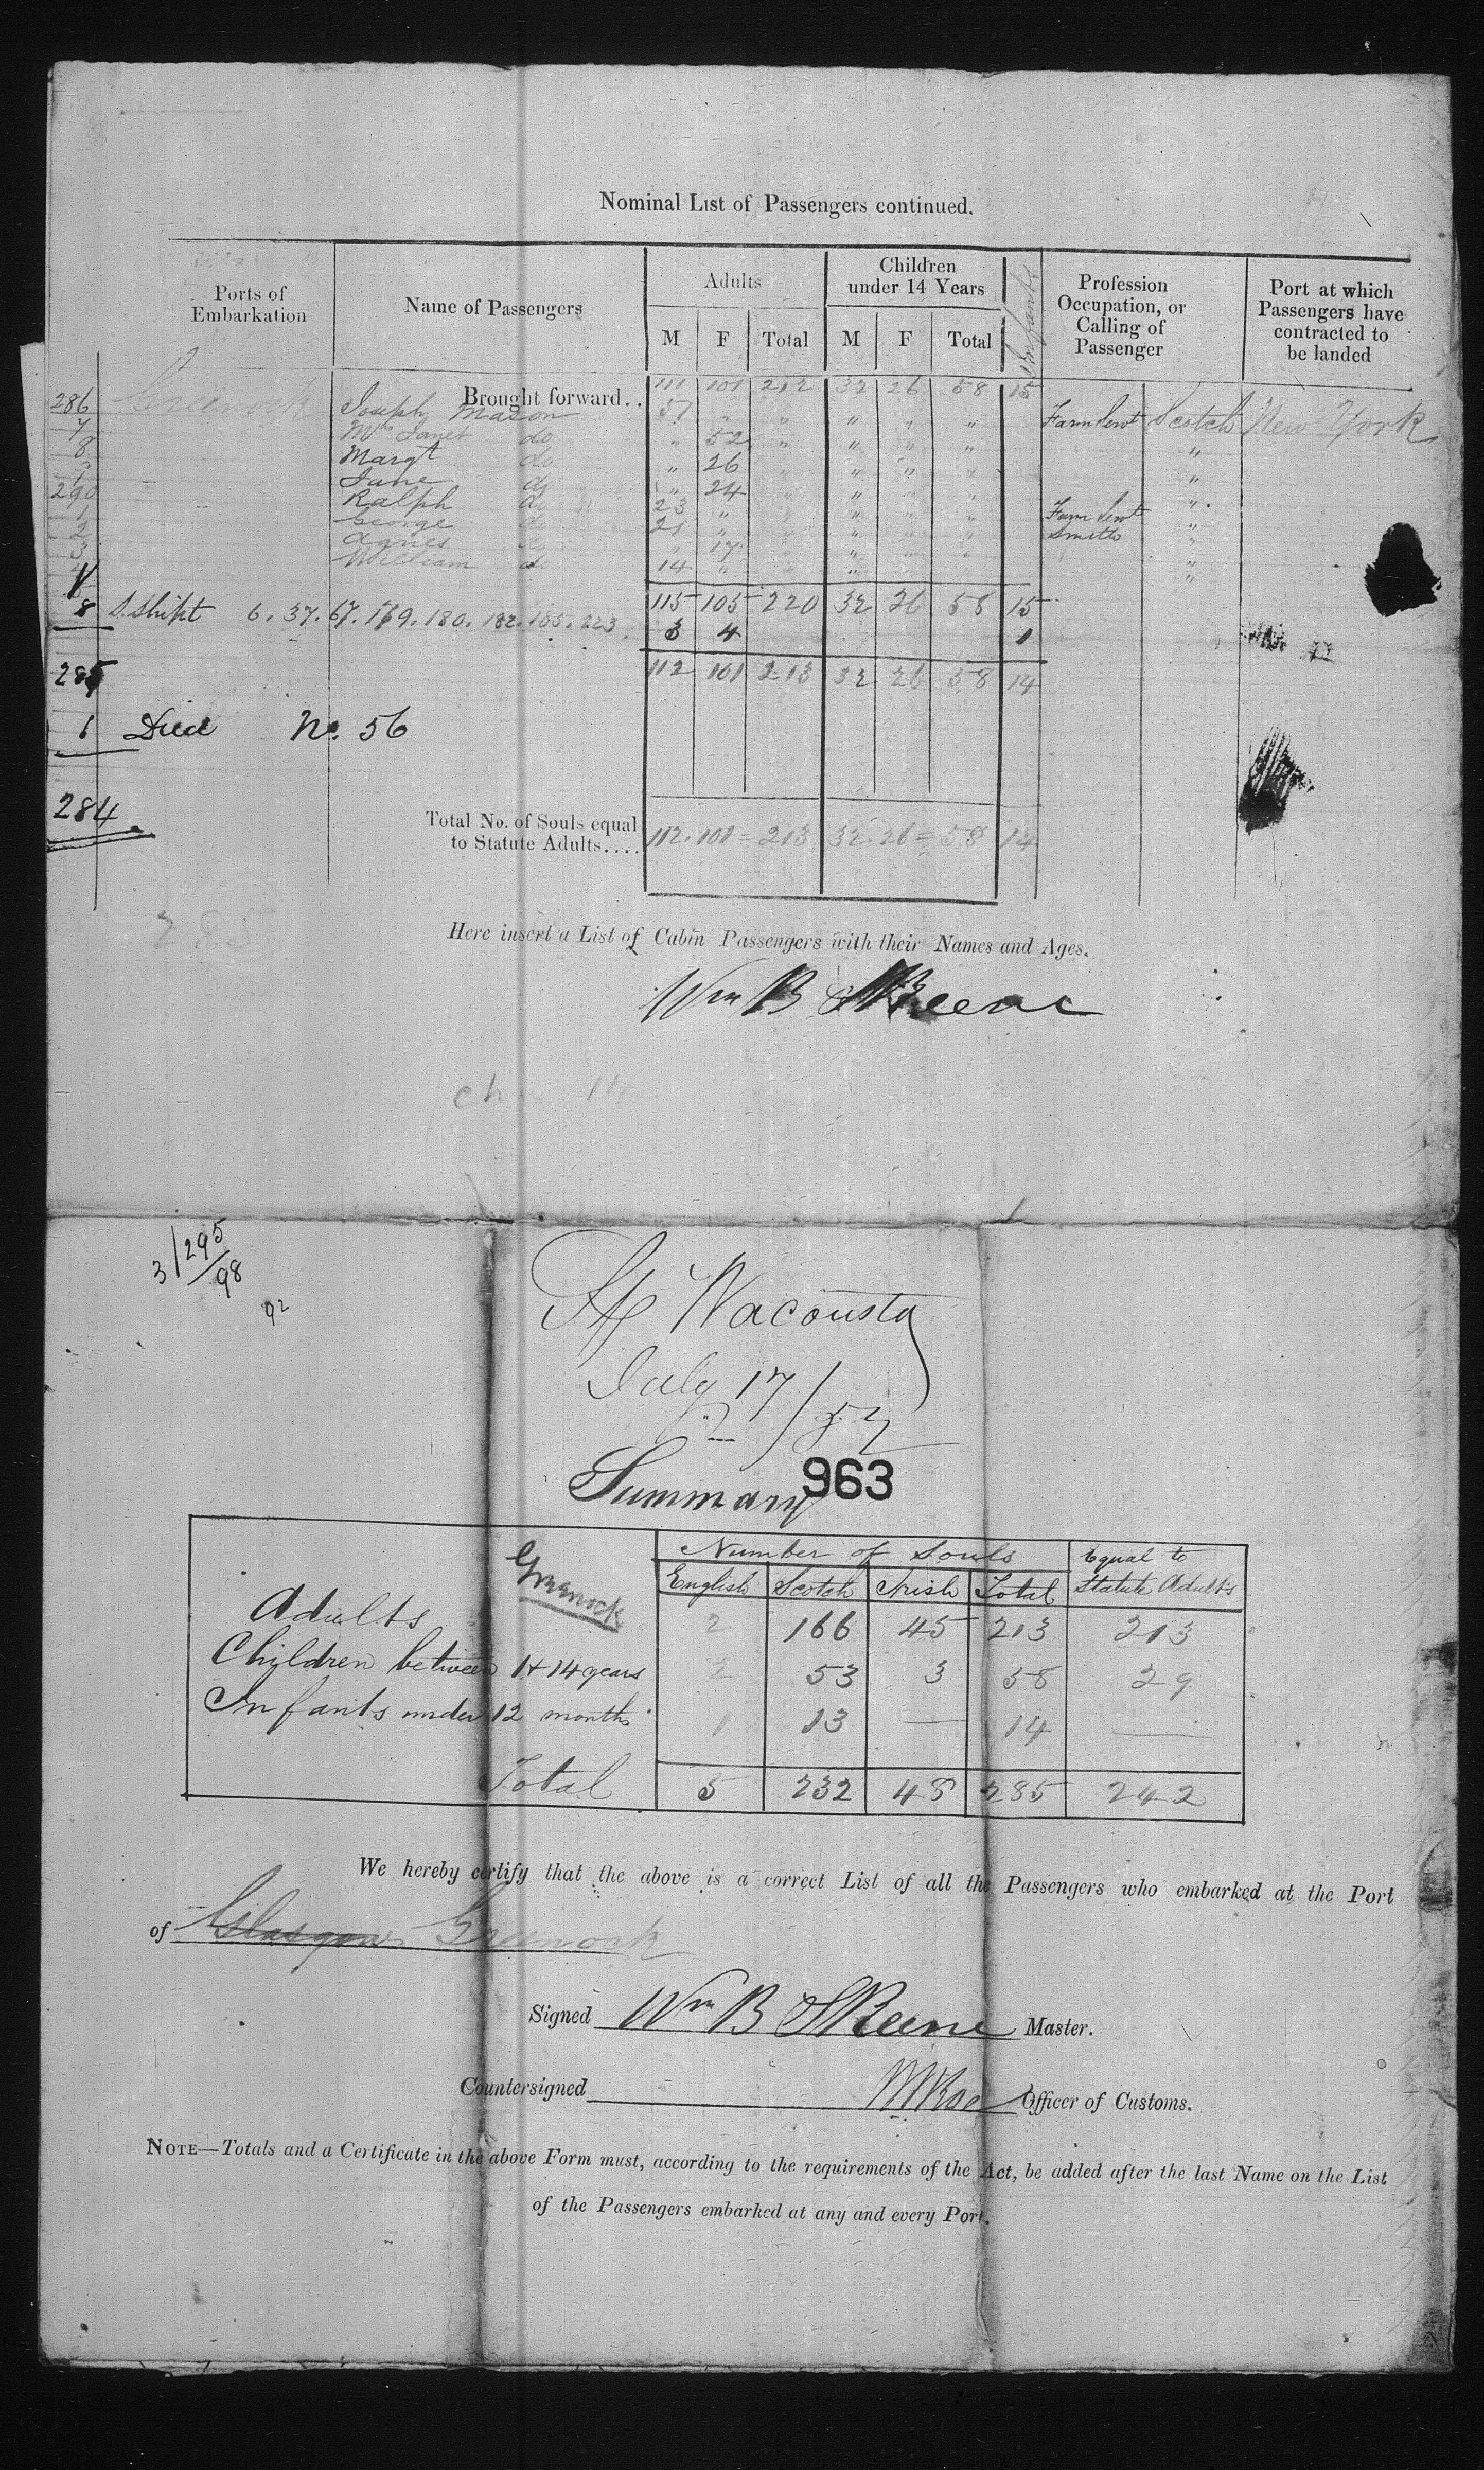 Nominal List of Passengers continued.
Ports of Embarkation | Name of Passengers | Adults M F Total | Children under 14 Years M F Total | Infants | Profession Occupation, or Calling of Passenger | Port at which Passengers have contracted to be landed
Brought forward.. 111 101 212 32 26 58 15
286 Greenock Joseph Mason 51 " " " " " Farm Servt Scotch New York
7 Mrs Janet do " 52 " " " " "
8 Margt do " 26 " " " " "
9 Jane do " 24 " " " " "
290 Ralph do 23 " " " " " Farm Servt "
1 George do 21 " " " " " Smith "
2 Agnes do " 17 " " " "
3 William do 14 " " " " " "
115 105 220 32 26 58 15
8 S. Shipt 6. 37. 67. 179. 180. 182. 185. 223. 3 4 1
285 112 101 213 32 26 58 14
1 Died No. 56
284
Total No. of Souls equal to Statute Adults.... 112. 101 = 213 32. 26 = 58 14
285
Here insert a List of Cabin Passengers with their Names and Ages.
Wm B Skeene
3/295
98
92
Wacousta
July 17/57
Summary 963
Greenock Number of Souls Equal to
English Scotch Irish Total Statute Adults
Adults 2 166 45 213 213
Children between 1 + 14 years 2 53 3 58 29
Infants under 12 months 1 13 — 14 —
Total 5 232 48 285 242
We hereby certify that the above is a correct List of all the Passengers who embarked at the Port
of Glasgow Greenock
Signed Wm B Skeene Master.
Countersigned Officer of Customs.
NOTE—Totals and a Certificate in the above Form must, according to the requirements of the Act, be added after the last Name on the List
of the Passengers embarked at any and every Port.